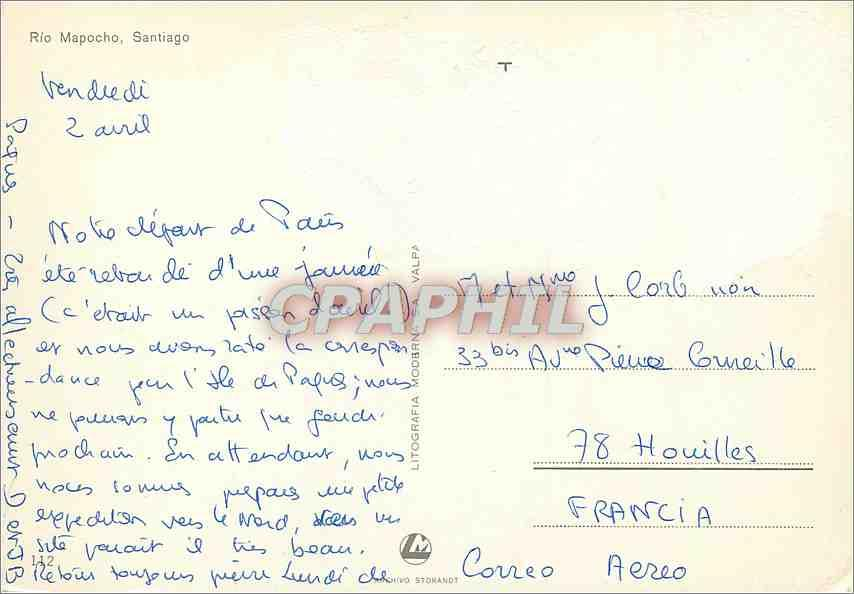 Río Mapocho, Santiago
Vendredi
2 avril
Notre départ de Paris
été retardé d'une journée
(c'était un poisson d'avril)
et nous avons raté la correspon
-dance pour l'Ile de Paques; nous
ne pouvons y partir que jeudi
prochain. En attendant, nous
nous sommes préparés une petite
expedition vers le Nord, dans un
site paraît il très beau.
Retour toujours prévu Lundi de
Paques - Très affectueusement
M et Mme J. Corb non
33bis Avnue Pierre Corneille
78 Houilles
FRANCIA
Correo Aereo
LITOGRAFIA MODERNA VALPA
CPAPHIL
112
LM
ARCHIVO STORANDT